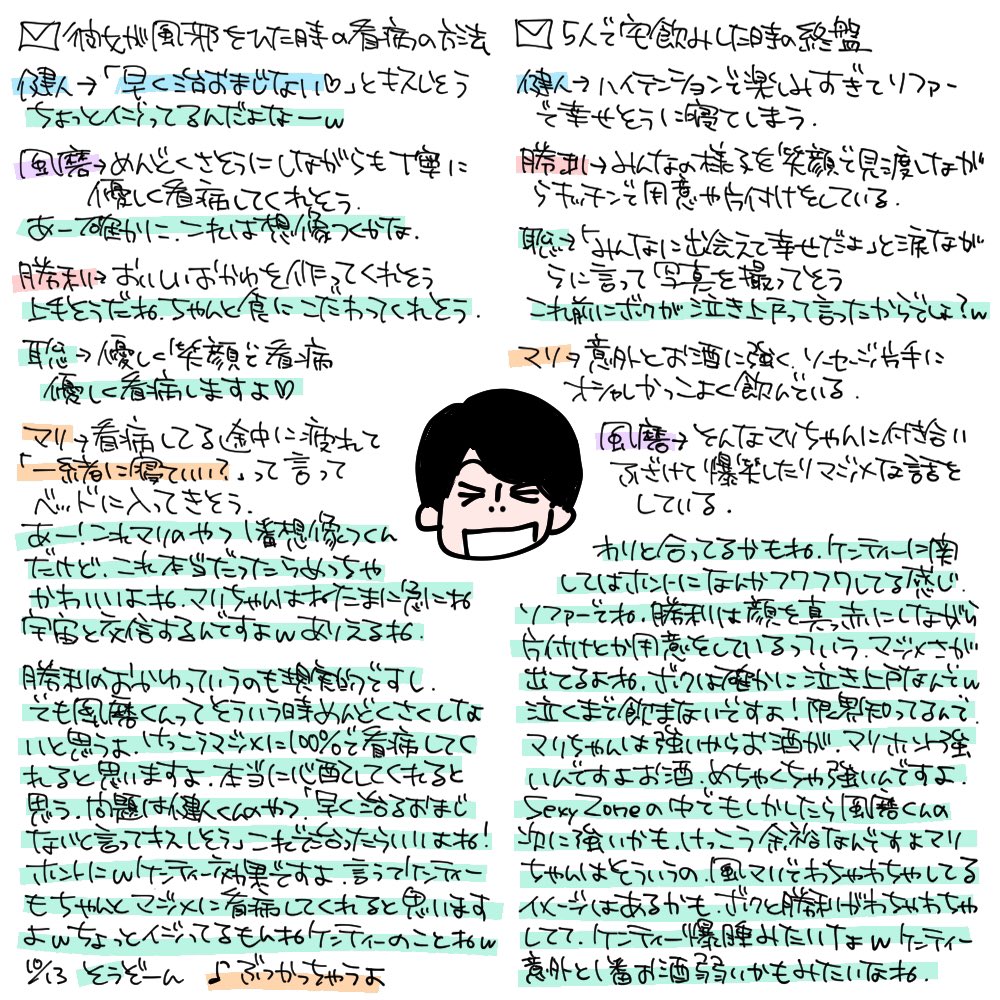 彼女が風邪をひいた時の看病の方法
健人→「早く治るおまじない♡」とキスしそう
ちょっとイジってるんだよなーw
風磨→めんどくさそうにしながらも丁寧に
優しく看病してくれそう.
あー確かに.これは想像つくかな.
勝利→おいしいおかゆを作ってくれそう
上手そうだね.ちゃんと食にこだわってくれそう.
聡→優しく笑顔で看病
優しく看病しますよ♡
マリ→看病してる途中に疲れて
「一緒に寝ていい?」って言って
ベッドに入ってきそう.
あー!これマリのやつ1番想像つくん
だけど.これ本当だったらめっちゃ
かわいいよね.マリちゃんはねたまに急にね
宇宙と交信するんですよwありえるね.
勝利のおかゆっていうのも現実的ですし.
でも風磨くんってそういう時めんどくさくしな
いと思うよ.けっこうマジメに100%で看病してく
れると思いますよ.本当に心配してくれると
思う.問題は健人くんのやつ「早く治るおまじ
ないと言ってキスしそう」これで治ったらいいよね!
ホントにwケンティー効果ですよ.言ってケンティー
もちゃんとマジメに看病してくれると思います
よwちょっとイジってるもんねケンティーのことねw
10/13 そうぞーん ♪ぶつかっちゃうよ
5人で宅飲みした時の終盤
健人→ハイテンションで楽しみすぎてソファー
で幸せそうに寝てしまう.
勝利→みんなの様子を笑顔で見渡しなが
らキッチンで用意や片付けをしている.
聡→「みんなに出会えて幸せだよ」と涙なが
らに言って写真を撮ってそう
これ前にボクが泣き上戸って言ったからでしょ?w
マリ→意外とお酒に強く.ソーセージ片手に
オシャレかっこよく飲んでいる.
風磨→そんなマリちゃんに付き合い
ふざけて爆笑したりマジメな話を
している.
わりと合ってるかもね.ケンティーに関
してはホントになんかフワフワしてる感じ.
ソファーでね.勝利は顔を真っ赤にしながら
片付けとか用意をしているっていう.マジメさが
出てるよね.ボクは確かに泣き上戸なんでw
泣くまで飲まないですよ!限界知ってるんで.
マリちゃんは強いからお酒が.マリホント強
いんですよお酒.めちゃくちゃ強いんですよ.
Sexy Zoneの中でもしかしたら風磨くんの
次に強いかも.けっこう余裕なんですよマリ
ちゃんはそういうの.風マリでわちゃわちゃしてる
イメージはあるかも.ボクと勝利がわちゃわちゃ
してて.ケンティー爆睡みたいなwケンティー
意外と1番お酒弱いかもみたいなね.